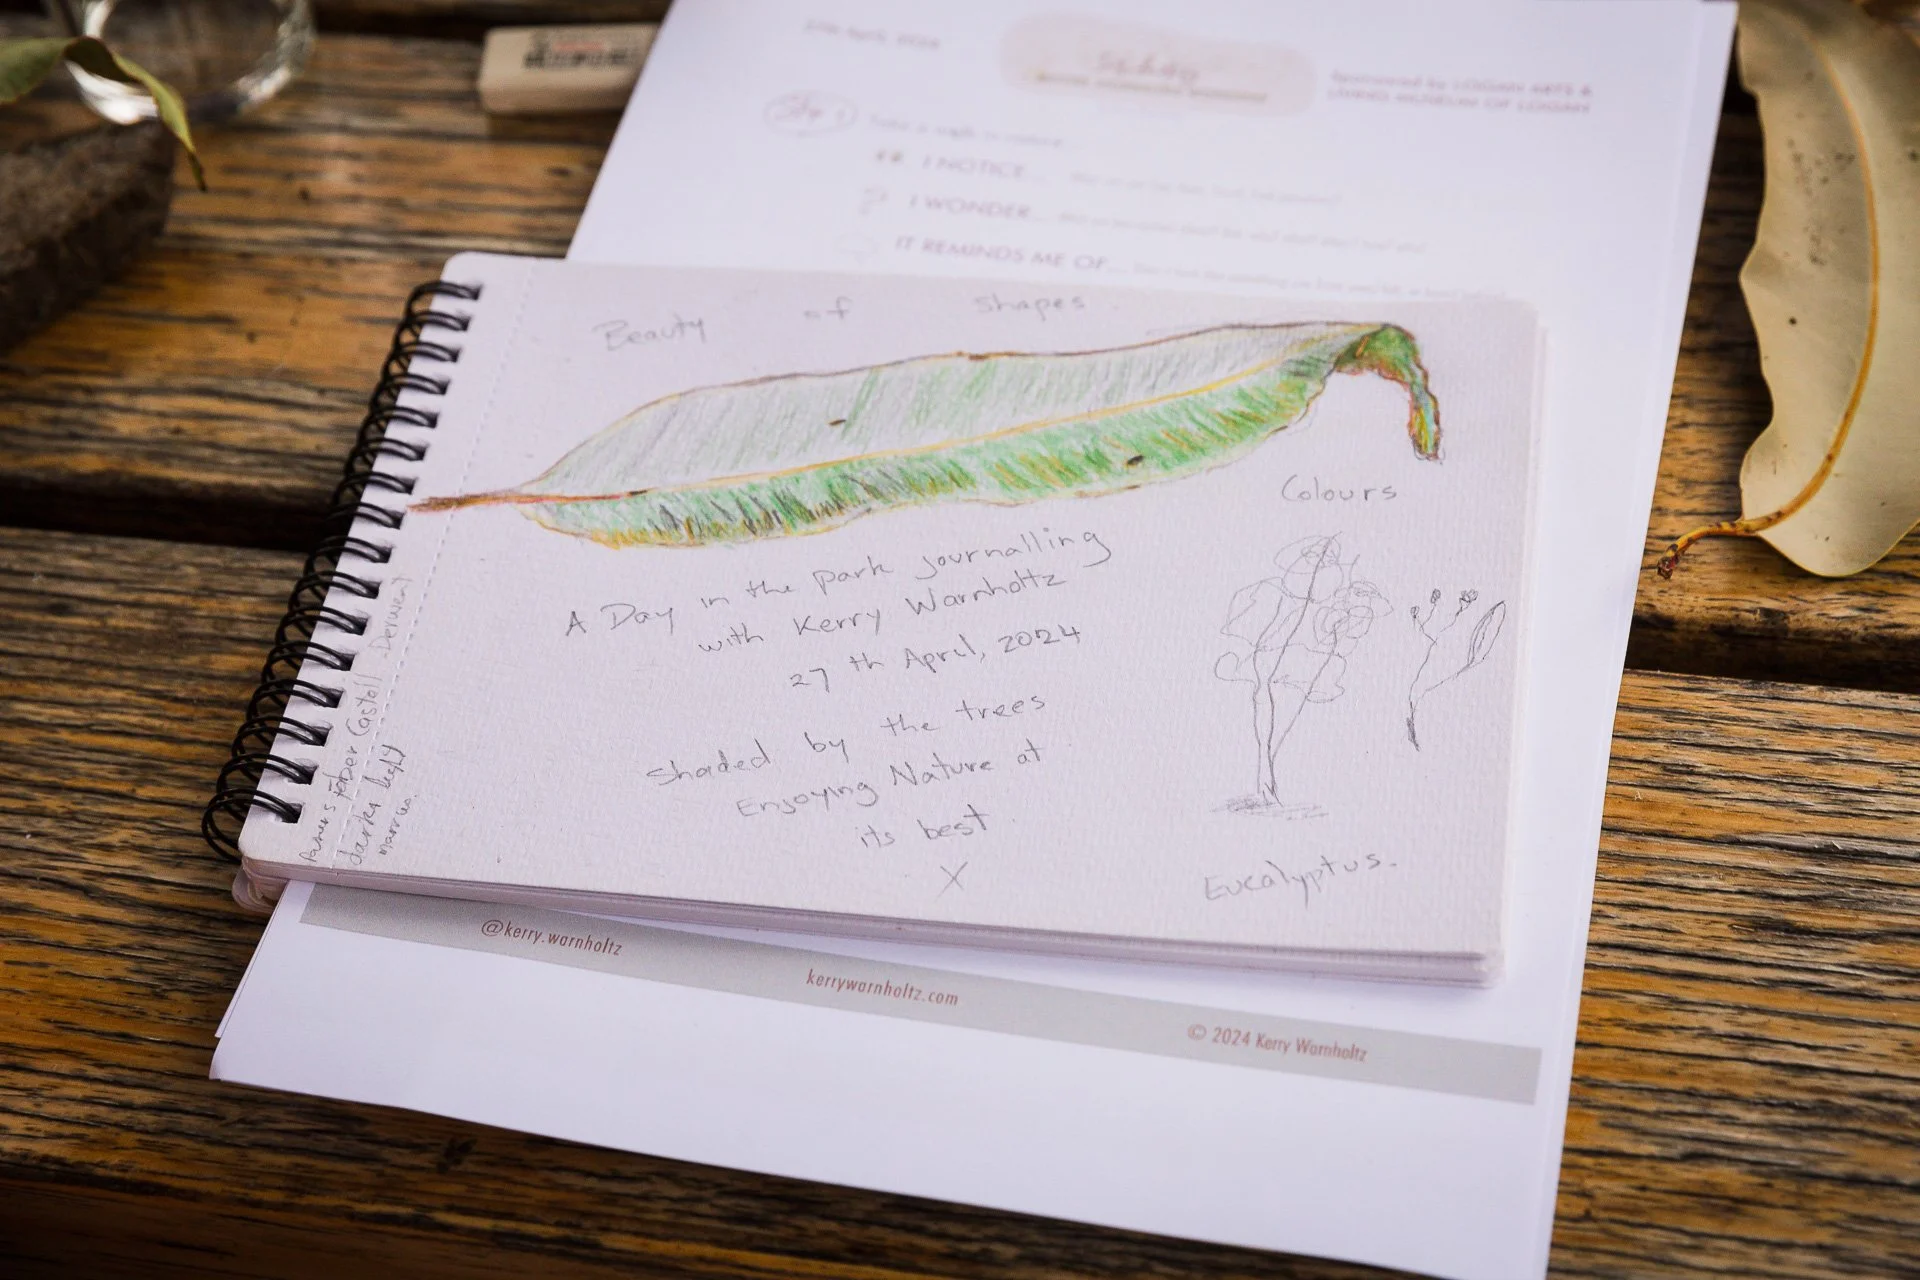 Sponsored by LOGAN ARTS &
LIVING MUSEUM OF LOGAN
Step 1
I NOTICE...
I WONDER...
IT REMINDS ME OF...
Beauty of shapes
Colours
A Day in the park journalling
with Kerry Warnholtz
27 th April, 2024
Shaded by the trees
Enjoying Nature at
its best
X
Eucalyptus.
faber Castell Derwent
@kerry.warnholtz
kerrywarnholtz.com
© 2024 Kerry Warnholtz